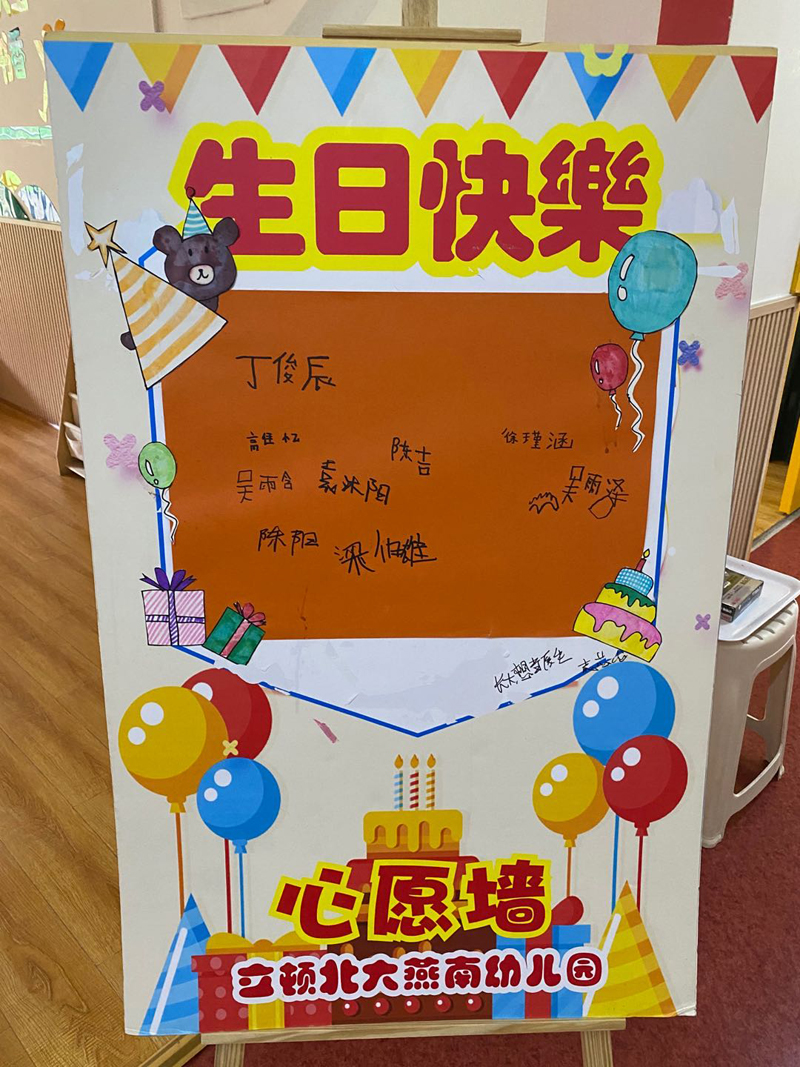 生日快樂
丁俊辰
陈吉
徐瑾涵
吴雨含
吴雨泽
陈阳
长大想当医生
心愿墙
立顿北大燕南幼儿园